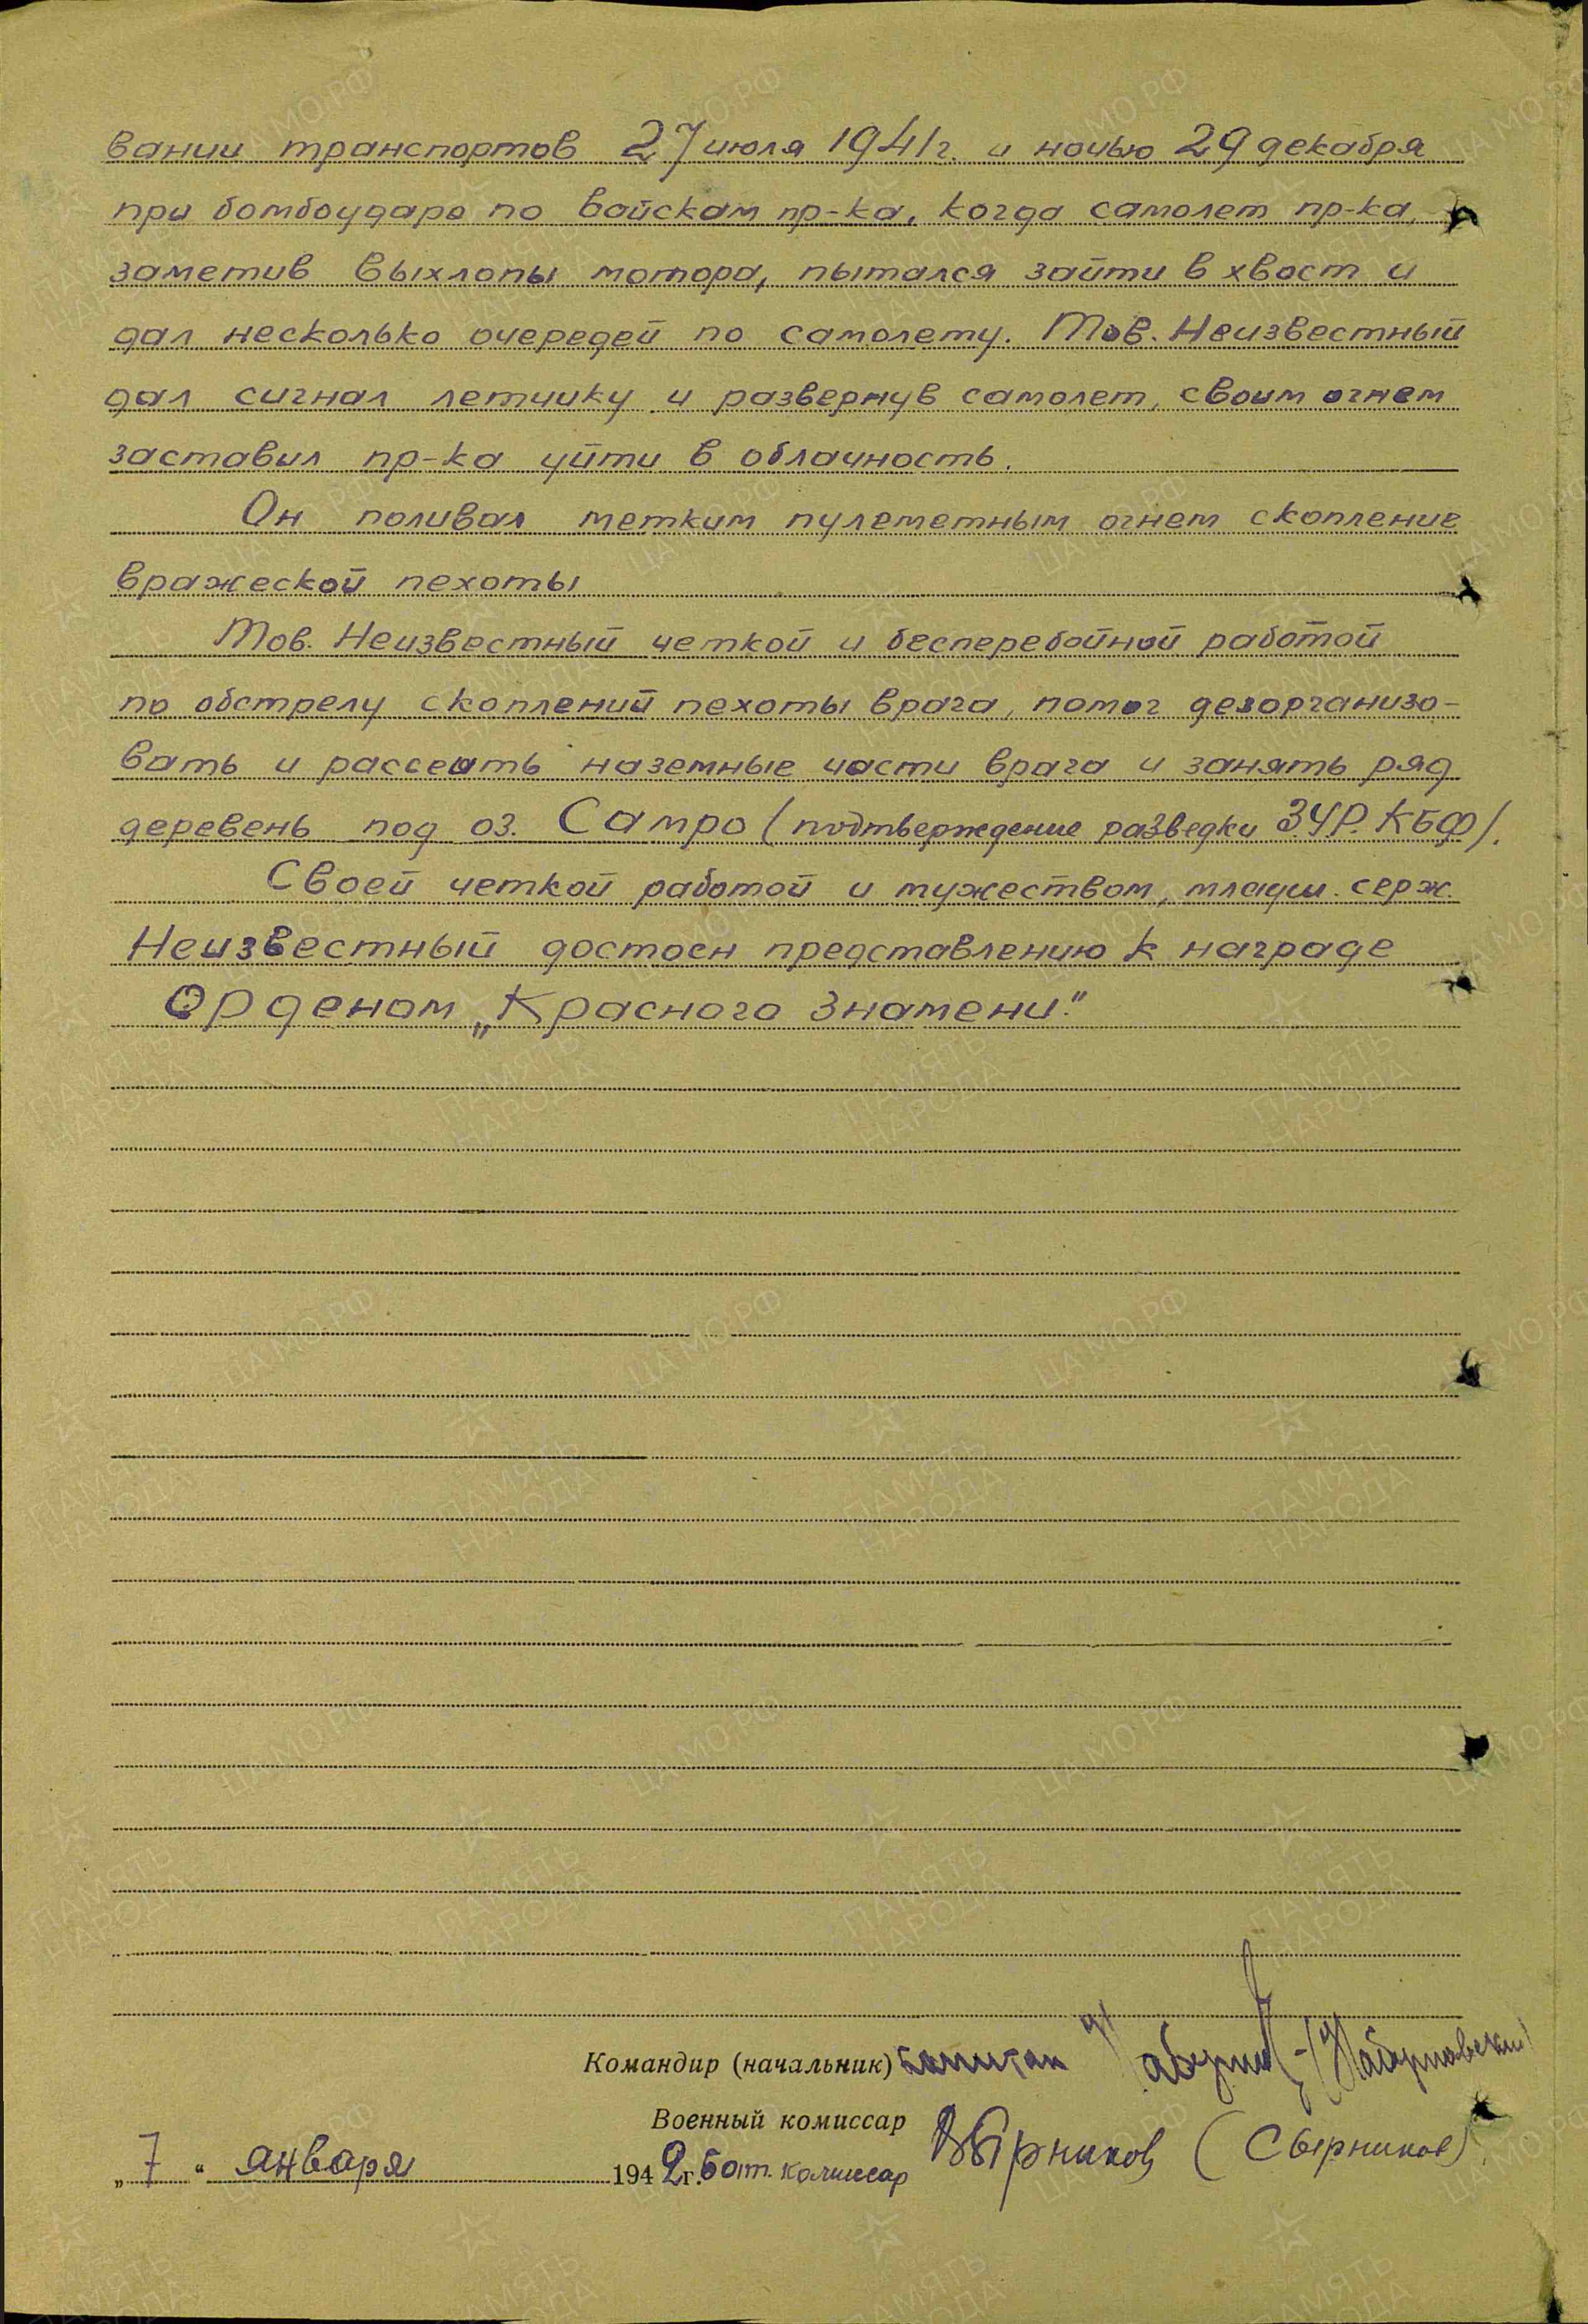 вании транспортов 27 июля 1941г. и ночью 29 декабря
при бомбоударе по войскам пр-ка, когда самолет пр-ка,
заметив выхлопы мотора, пытался зайти в хвост и
дал несколько очередей по самолету. Тов. Неизвестный
дал сигнал летчику и развернув самолет, своим огнем
заставил пр-ка уйти в облачность.
Он поливал метким пулеметным огнем скопление
вражеской пехоты
Тов. Неизвестный четкой и бесперебойной работой
по обстрелу скоплений пехоты врага, помог дезорганизо-
вать и рассеить наземные части врага и занять ряд
деревень под оз. Самро (подтверждение разведки ЗУР. КБФ).
Своей четкой работой и мужеством, младш. серж.
Неизвестный достоен представлению к награде
Орденом „Красного Знамени".
Командир (начальник) капитан
Военный комиссар
„7" января 1942г. бат. комиссар Сырников (Сырников)
ЦАМО.РФ
ПАМЯТЬ НАРОДА